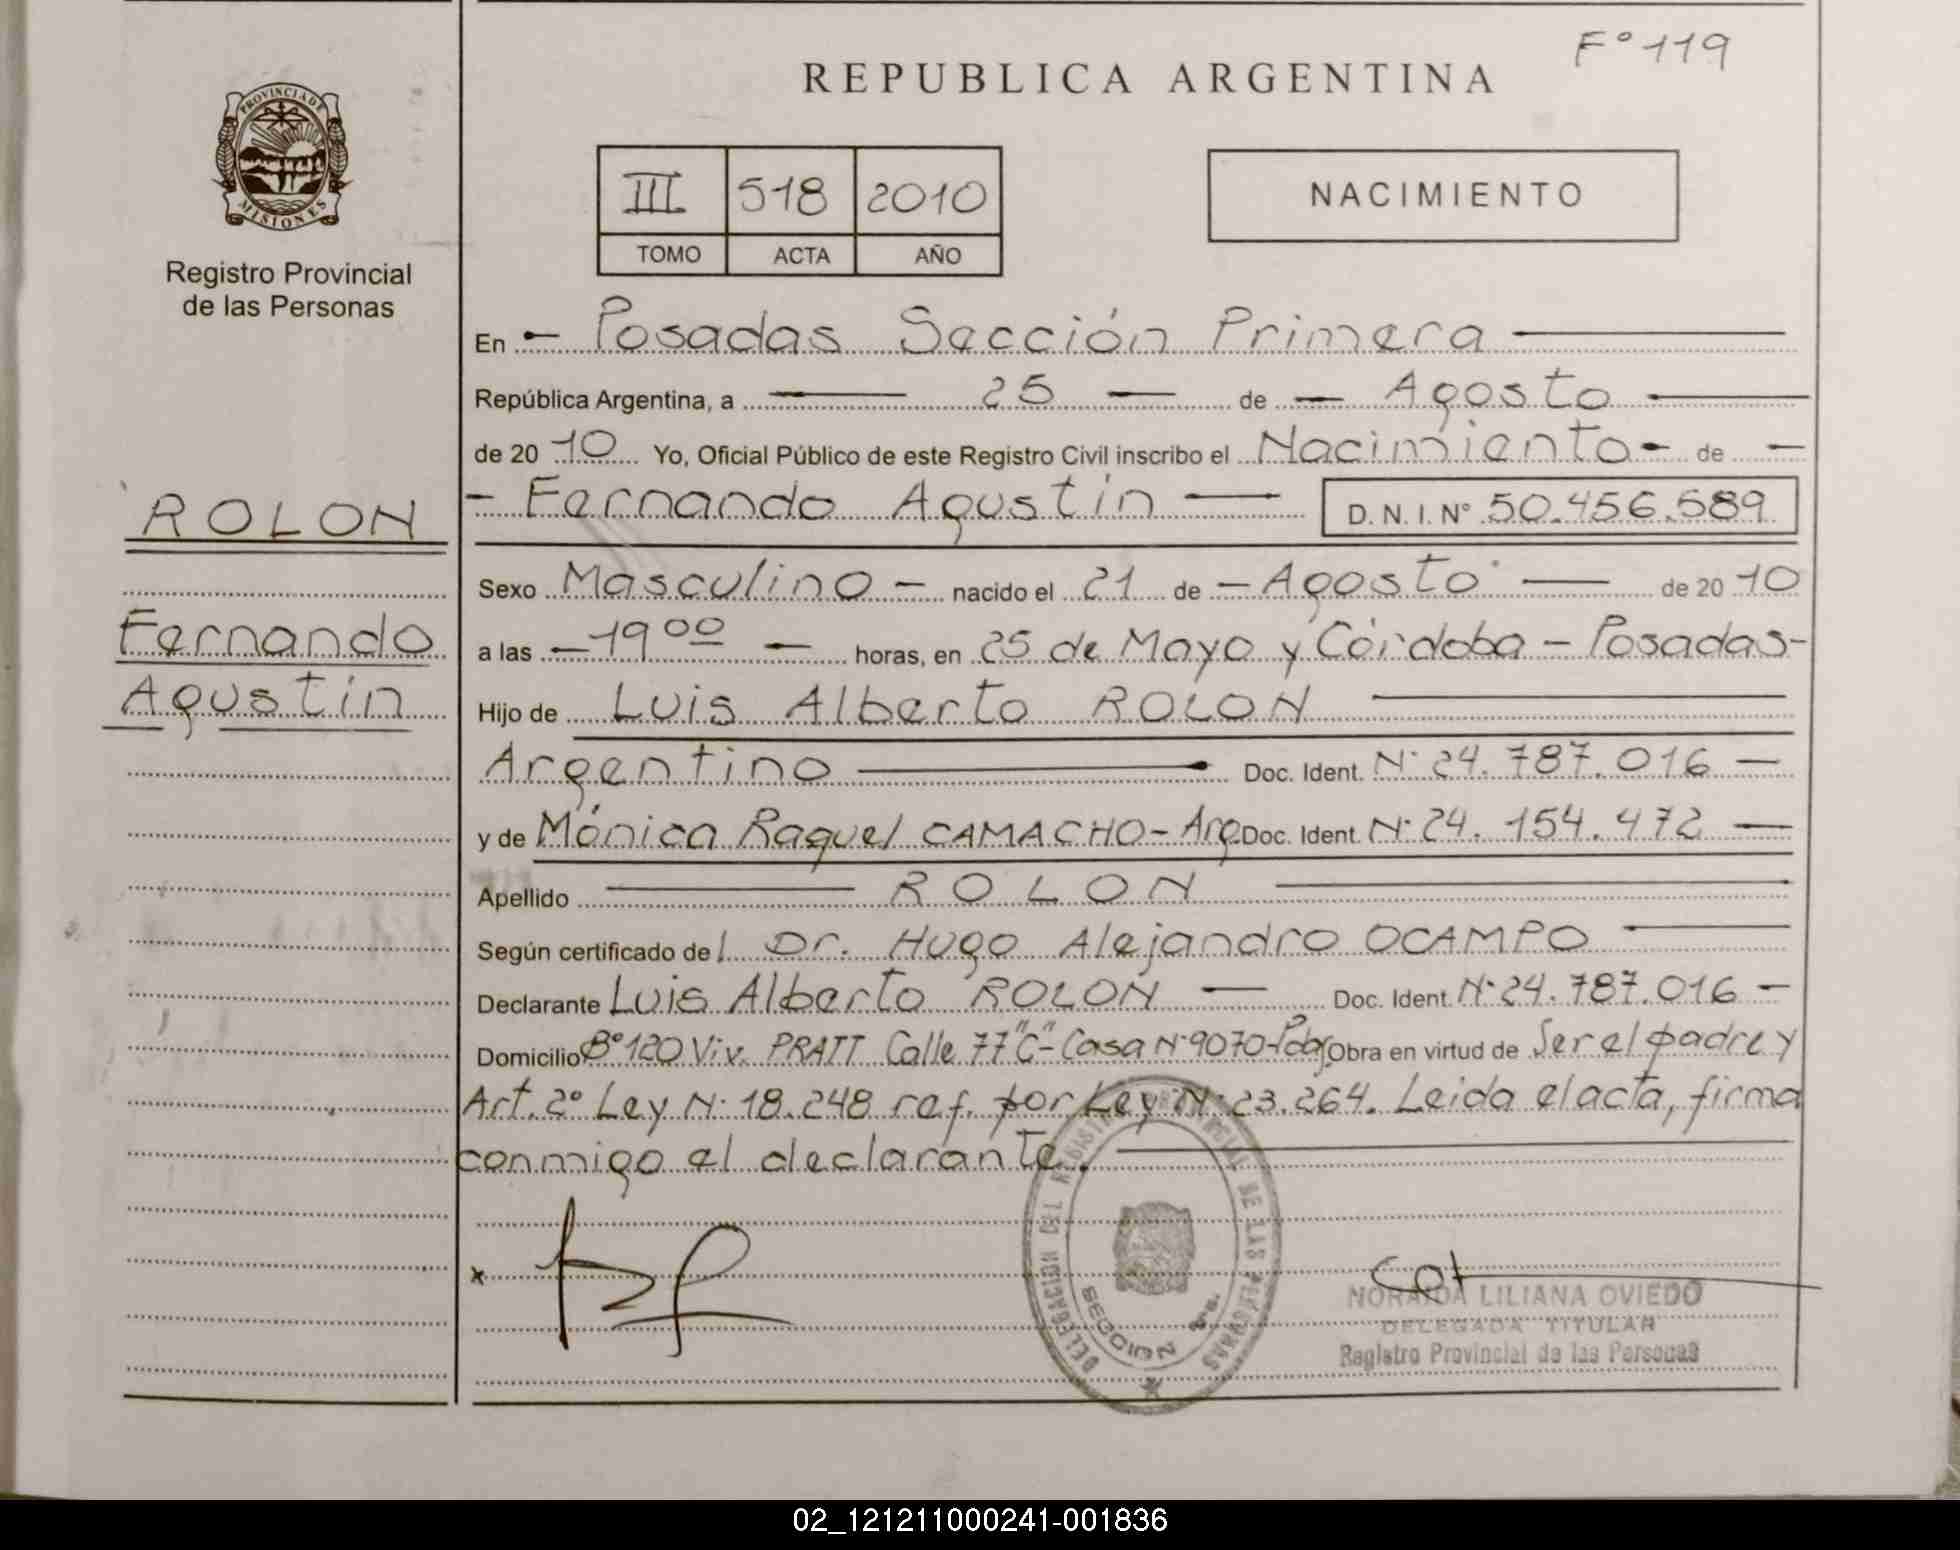 F° 119
REPUBLICA ARGENTINA
PROVINCIA DE
MISIONES
Registro Provincial
de las Personas
III 518 2010
TOMO ACTA AÑO
NACIMIENTO
En - Posadas Sección Primera
República Argentina, a 25 de - Agosto
de 20 10 Yo, Oficial Público de este Registro Civil inscribo el Nacimiento - de -
ROLON
- Fernando Agustín D.N.I. N° 50.456.589
Fernando
Agustín
Sexo Masculino - nacido el 21 de - Agosto de 20 10
a las - 19 00 - horas, en 25 de Mayo y Córdoba - Posadas-
Hijo de Luis Alberto ROLON
Argentino Doc. Ident. N° 24.787.016 -
y de Mónica Raquel CAMACHO - Arg Doc. Ident. N° 24.154.472 -
Apellido ROLON
Según certificado de l Dr. Hugo Alejandro OCAMPO
Declarante Luis Alberto ROLON - Doc. Ident. N° 24.787.016 -
Domicilio B° 120 Viv. PRATT Calle 77 "C" - Casa N° 9070 - Obra en virtud de Ser el padre y
Art. 2° Ley N° 18.248 ref. por Ley N° 23.264. Leida el acta, firma
conmigo el declarante.
x
DELEGACION DEL REGISTRO PROVINCIAL DE LAS PERSONAS
SECCION
NORAIDA LILIANA OVIEDO
DELEGADA TITULAR
Registro Provincial de las Personas
02_121211000241-001836